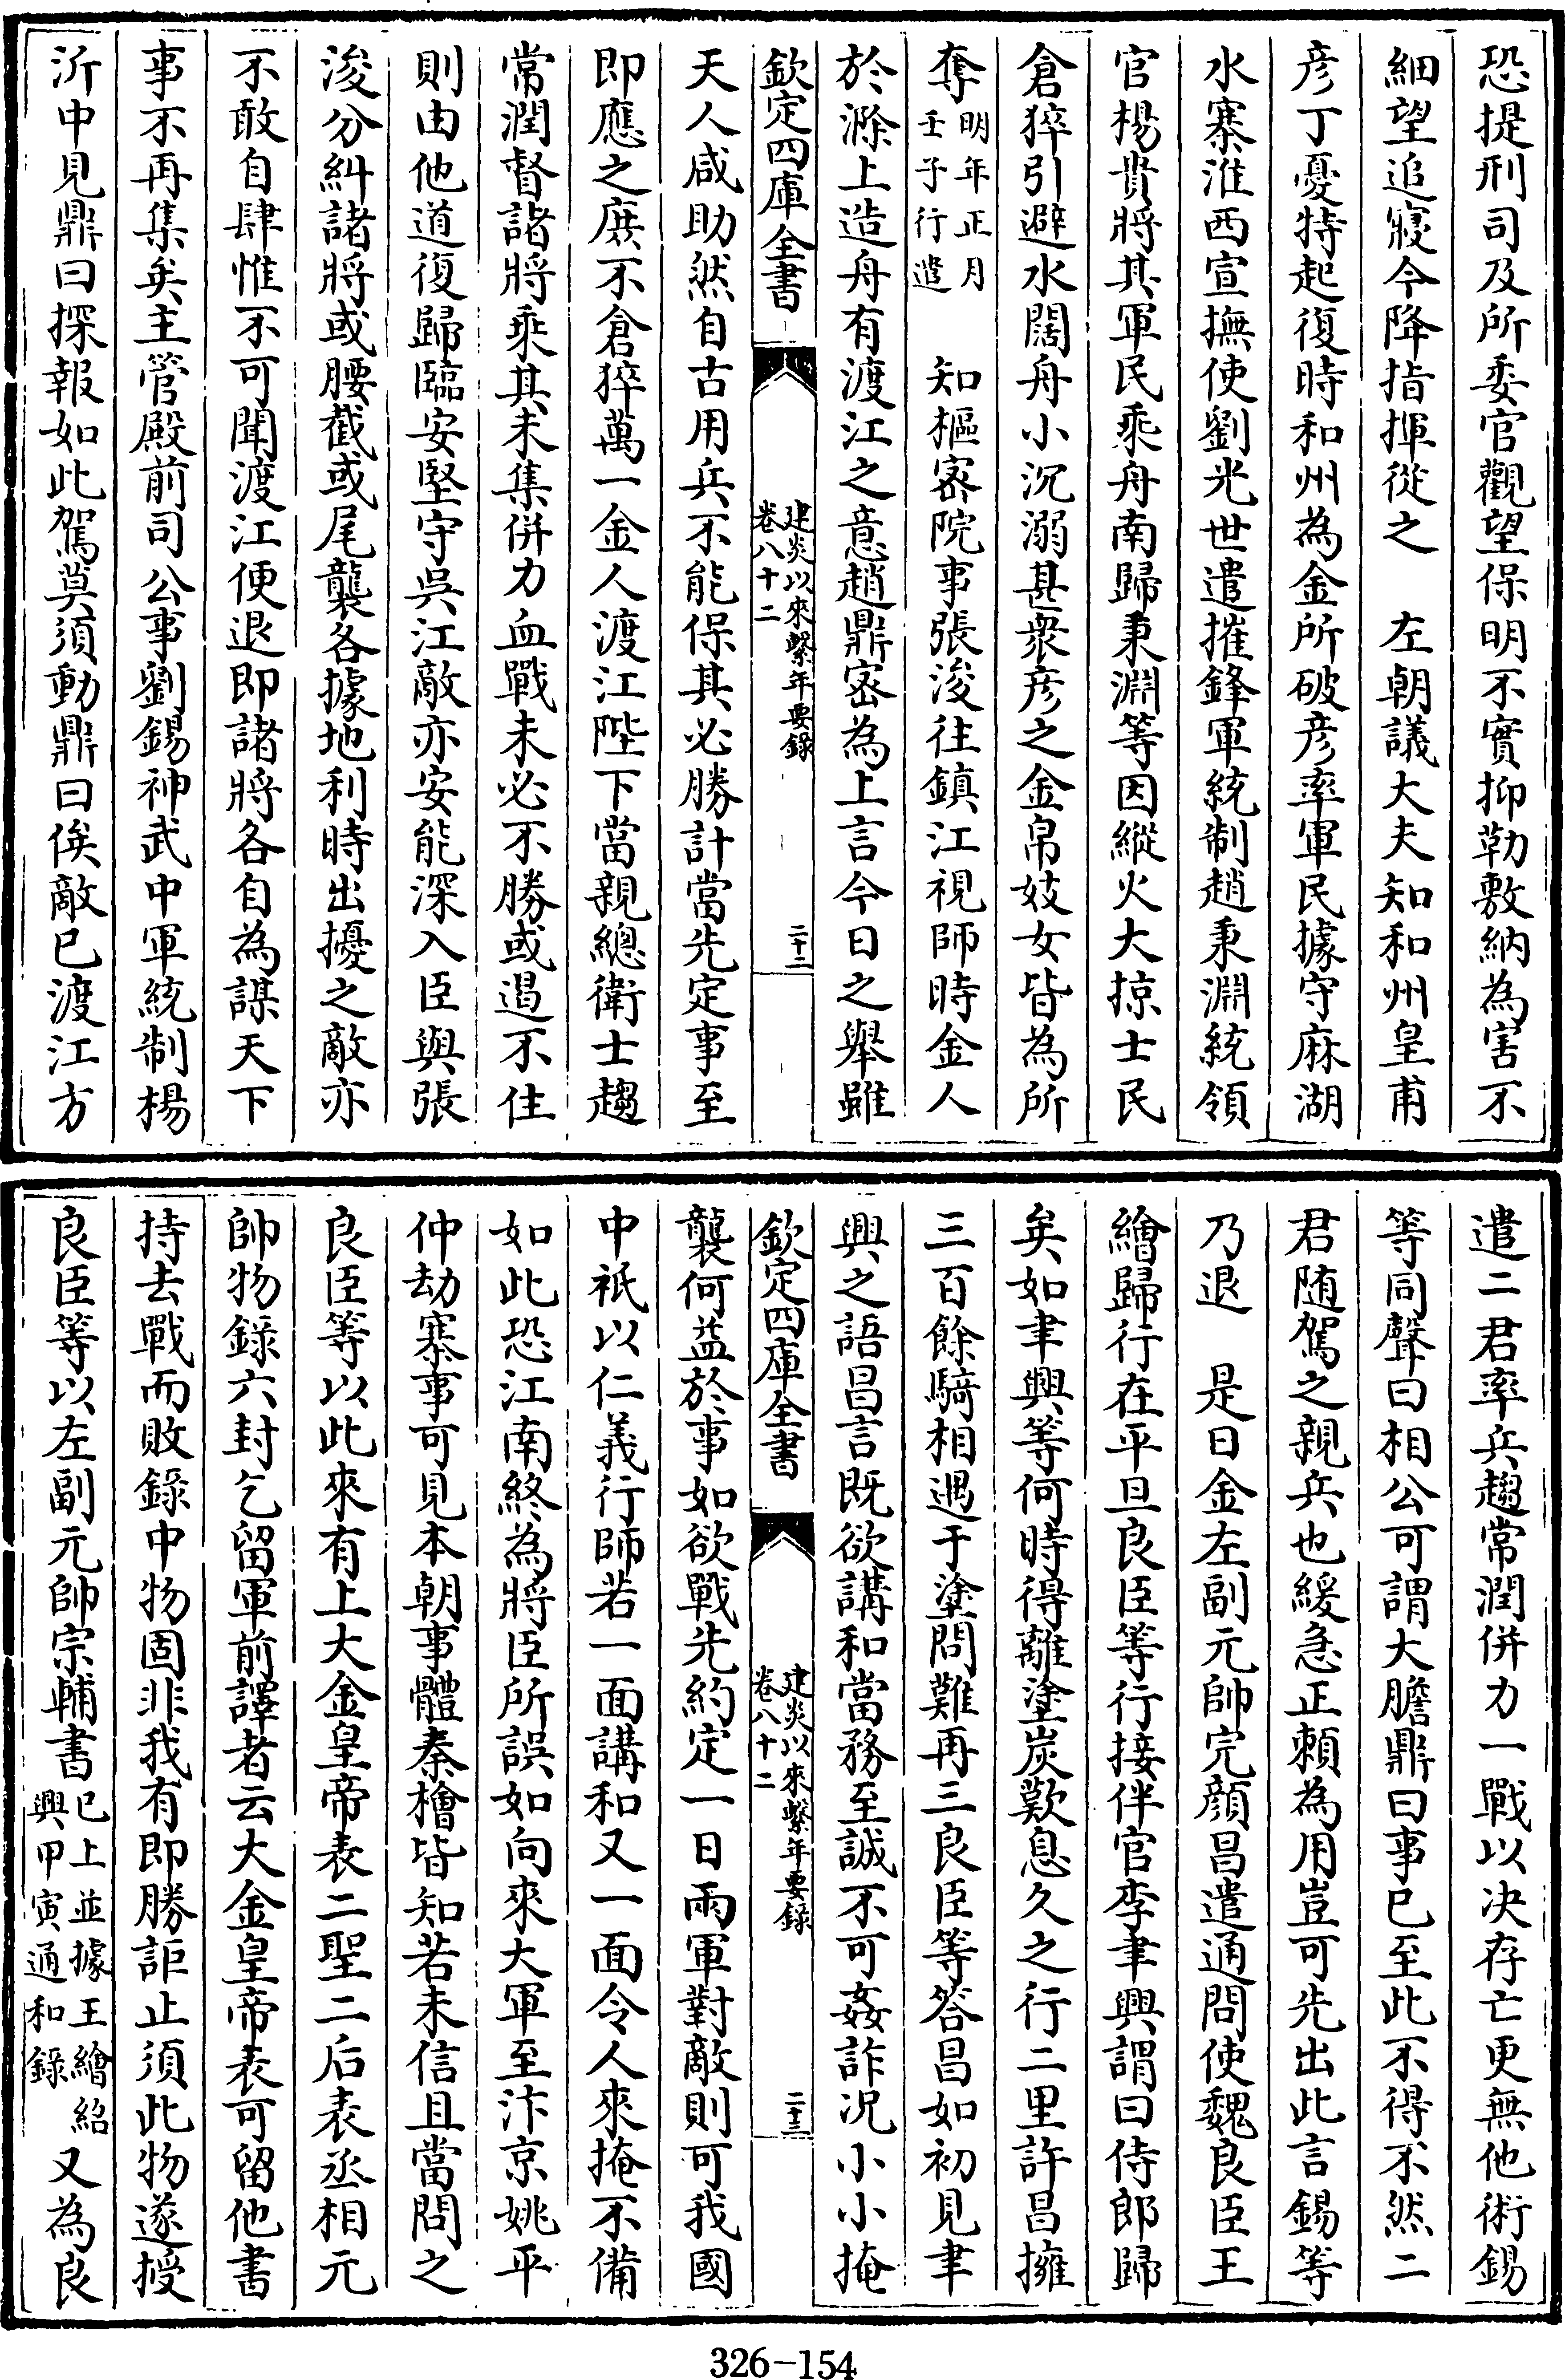 恐提刑司及所委官觀望保明不實抑勒敷納為害不
細望追寢今降指揮從之　左朝議大夫知和州皇甫
彦丁憂特起復時和州為金所破彦率軍民據守麻湖
水寨淮西宣撫使劉光世遣摧鋒軍統制趙秉淵統領
官楊貴將其軍民乘舟南歸秉淵等因縱火大掠士民
倉猝引避水闊舟小沉溺甚衆彦之金帛妓女皆為所
奪明年正月壬子行遣　知樞密院事張浚往鎮江視師時金人
於滁上造舟有渡江之意趙鼎密為上言今日之舉雖
欽定四庫全書　建炎以來繫年要錄卷八十二　二十二
天人咸助然自古用兵不能保其必勝計當先定事至
即應之庶不倉猝萬一金人渡江陛下當親總衛士趨
常潤督諸將乘其未集併力血戰未必不勝或遏不住
則由他道復歸臨安堅守吳江敵亦安能深入臣與張
浚分糾諸將或腰截或尾襲各據地利時出擾之敵亦
不敢自肆惟不可聞渡江便退即諸將各自為謀天下
事不再集矣主管殿前司公事劉錫神武中軍統制楊
沂中見鼎曰探報如此駕莫須動鼎曰俟敵已渡江方
遣二君率兵趨常潤併力一戰以決存亡更無他術錫
等同聲曰相公可謂大膽鼎曰事已至此不得不然二
君随駕之親兵也緩急正賴為用豈可先出此言錫等
乃退　是日金左副元帥完顔昌遣通問使魏良臣王
繪歸行在平旦良臣等行接伴官李聿興謂曰侍郎歸
矣如聿興等何時得離塗炭歎息久之行二里許昌擁
三百餘騎相遇于塗問難再三良臣等答昌如初見聿
興之語昌言既欲講和當務至誠不可姦詐況小小掩
欽定四庫全書　建炎以來繫年要錄卷八十二　二十三
襲何益於事如欲戰先約定一日兩軍對敵則可我國
中祇以仁義行師若一面講和又一面令人來掩不備
如此恐江南終為將臣所誤如向來大軍至汴京姚平
仲劫寨事可見本朝事體秦檜皆知若未信且當問之
良臣等以此來有上大金皇帝表二聖二后表丞相元
帥物錄六封乞留軍前譯者云大金皇帝表可留他書
持去戰而敗錄中物固非我有即勝詎止須此物遂授
良臣等以左副元帥宗輔書已上並據王繪紹興甲寅通和錄　又為良
326-154